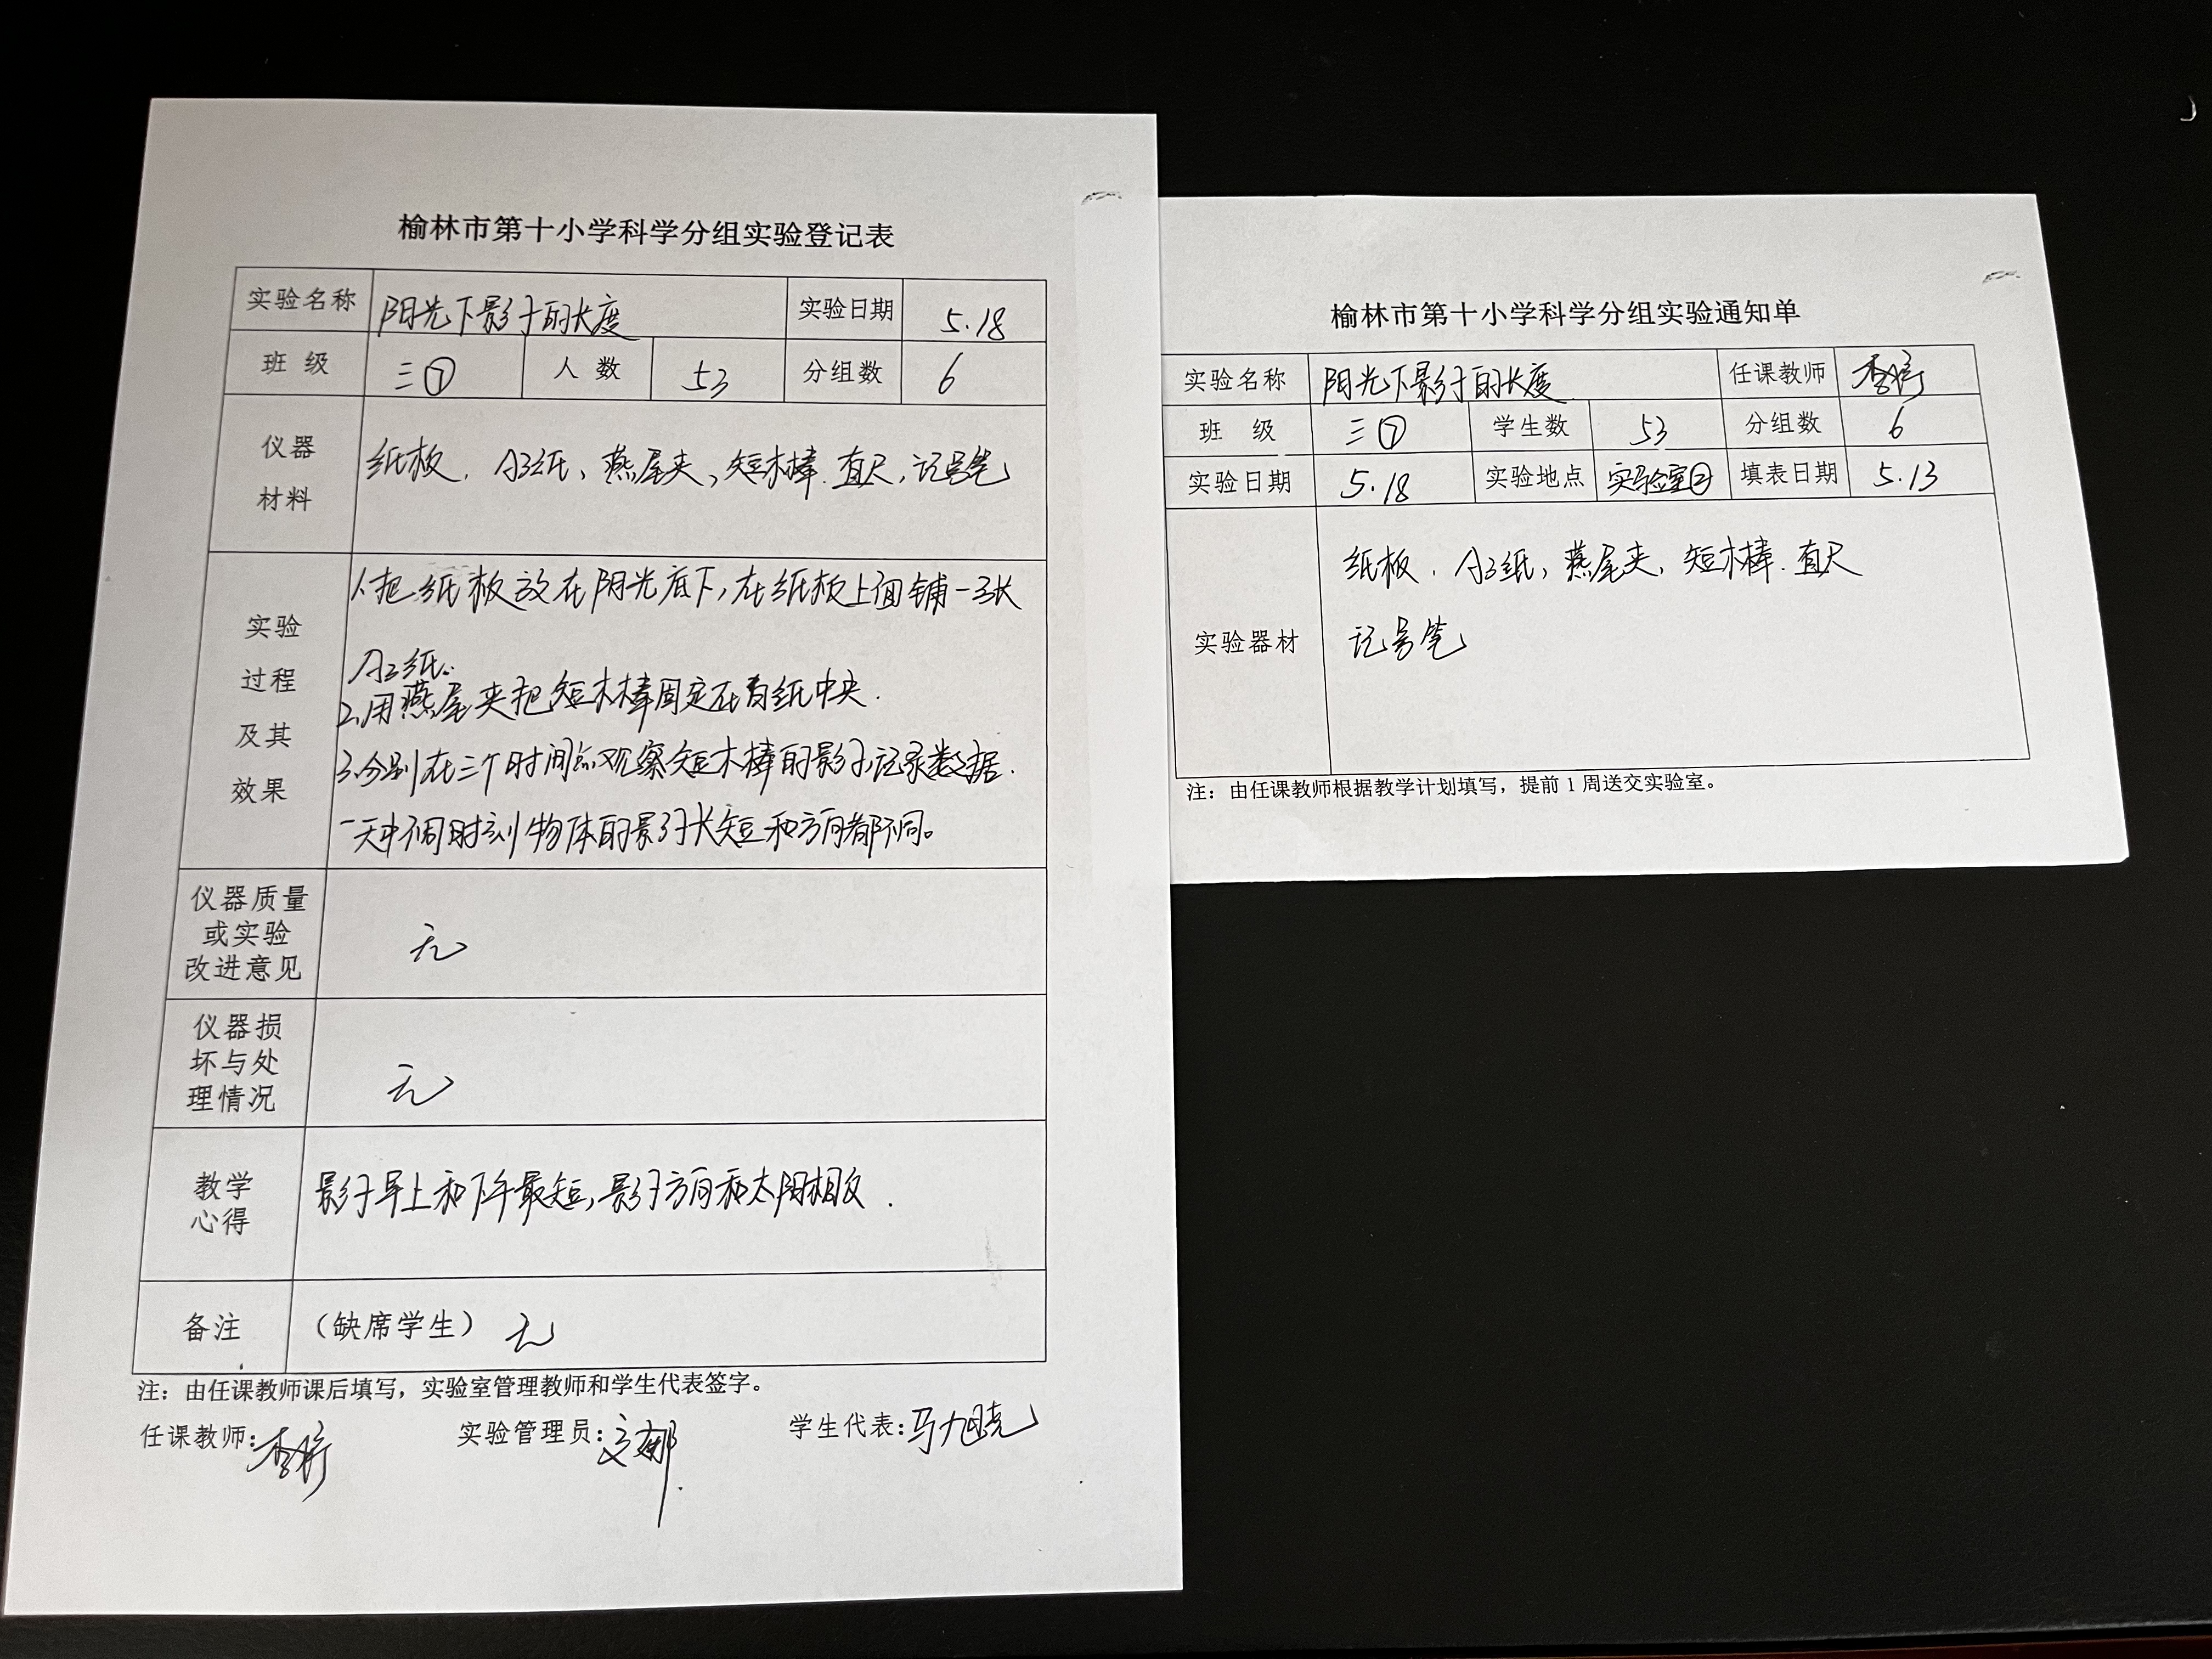 榆林市第十小学科学分组实验登记表
实验名称 阳光下影子的长度 实验日期 5.18
班 级 三⑦ 人 数 53 分组数 6
仪器
材料
纸板、A3纸、燕尾夹、短木棒、直尺、记号笔
实验
过程
及其
效果
1.把纸板放在阳光底下,在纸板上面铺一张
A3纸.
2.用燕尾夹把短木棒固定在白纸中央.
3.分别在三个时间点观察短木棒的影子,记录数据.
一天中不同时刻物体的影子长短和方向都不同。
仪器质量
或实验
改进意见
无
仪器损
坏与处
理情况
无
教学
心得
影子早上和下午最短,影子方向和太阳相反.
备注 (缺席学生) 无
注:由任课教师课后填写,实验室管理教师和学生代表签字。
任课教师: 实验管理员: 学生代表:马旭亮
榆林市第十小学科学分组实验通知单
实验名称 阳光下影子的长度 任课教师
班 级 三⑦ 学生数 53 分组数 6
实验日期 5.18 实验地点 实验室② 填表日期 5.13
实验器材
纸板、A3纸、燕尾夹、短木棒、直尺
记号笔
注:由任课教师根据教学计划填写,提前1周送交实验室。